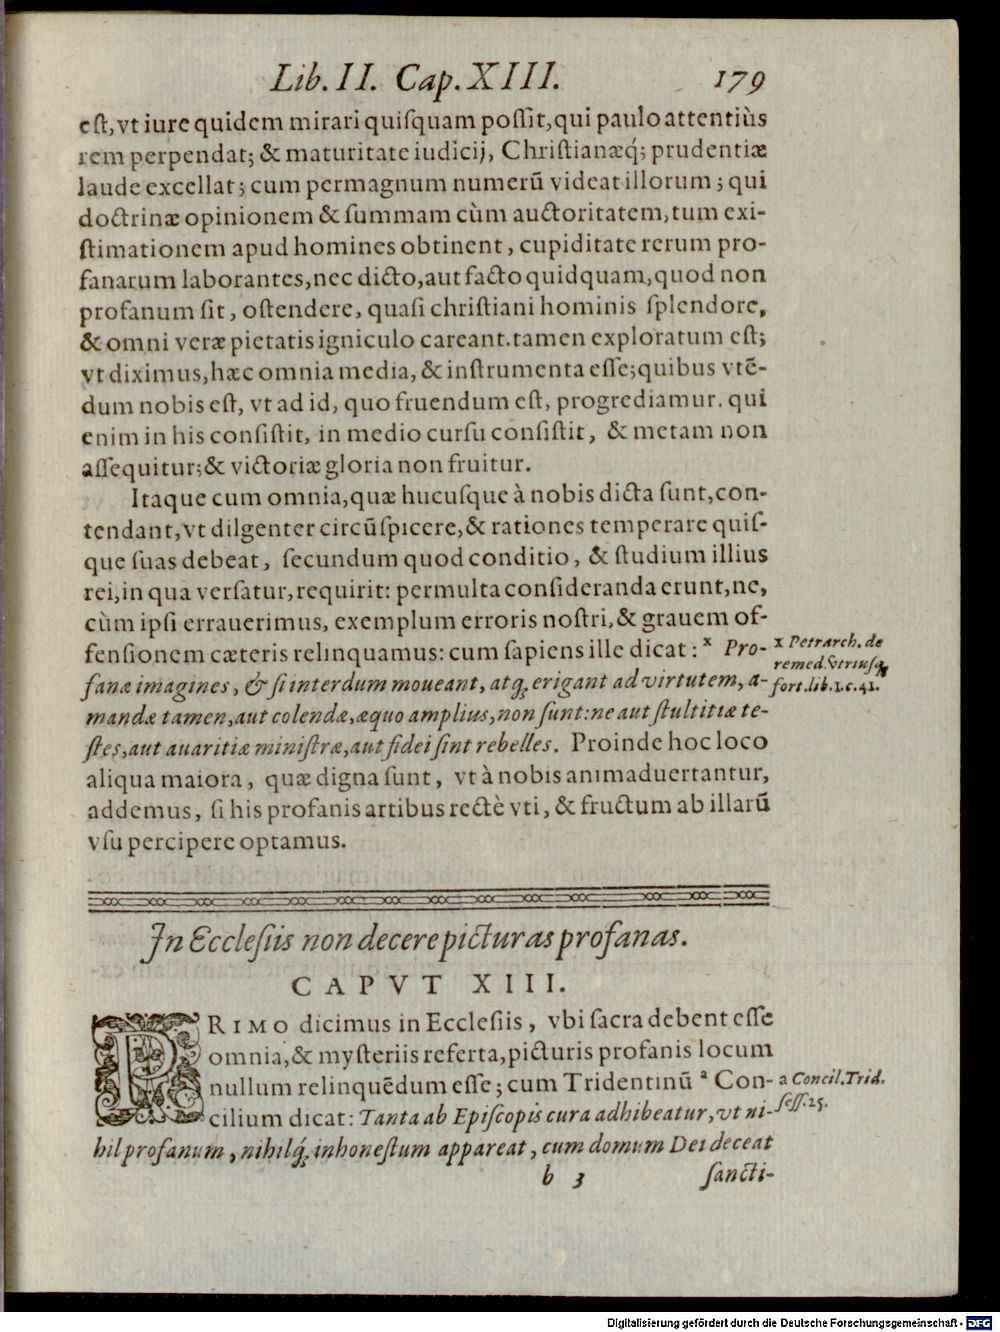 Lib. II. Cap. XIII. 179
est, vt iure quidem mirari quiſquam poſſit, qui paulo attentiùs
rem perpendat; & maturitate iudicij, Chriſtianæq́; prudentiæ
laude excellat; cum permagnum numerū videat illorum; qui
doctrinæ opinionem & ſummam cùm auctoritatem, tum exi-
ſtimationem apud homines obtinent, cupiditate rerum pro-
fanarum laborantes, nec dicto, aut facto quidquam, quod non
profanum ſit, oſtendere, quaſi chriſtiani hominis ſplendore,
& omni veræ pietatis igniculo careant. tamen exploratum eſt;
vt diximus, hæc omnia media, & inſtrumenta eſſe; quibus vtē-
dum nobis eſt, vt ad id, quo fruendum eſt, progrediamur. qui
enim in his conſiſtit, in medio curſu conſiſtit, & metam non
aſſequitur; & victoriæ gloria non fruitur.
Itaque cum omnia, quæ hucuſque à nobis dicta ſunt, con-
tendant, vt dilgenter circūſpicere, & rationes temperare quiſ-
que ſuas debeat, ſecundum quod conditio, & ſtudium illius
rei, in qua verſatur, requirit: permulta conſideranda erunt, ne,
cùm ipſi errauerimus, exemplum erroris noſtri, & grauem of-
fenſionem cæteris relinquamus: cum ſapiens ille dicat: x Pro-
fanæ imagines, & ſi interdum moueant, atq; erigant ad virtutem, a-
mandæ tamen, aut colendæ, æquo amplius, non ſunt: ne aut ſtultitiæ te-
ſtes, aut auaritiæ miniſtræ, aut fidei ſint rebelles. Proinde hoc loco
aliqua maiora, quæ digna ſunt, vt à nobis animaduertantur,
addemus, ſi his profanis artibus rectè vti, & fructum ab illarū
vſu percipere optamus.
x Petrarch. de
remed. vtriuſq;
fort. lib. 1. c. 41.
In Eccleſiis non decere picturas profanas.
CAPVT XIII.
PRIMO dicimus in Eccleſiis, vbi ſacra debent eſſe
omnia, & myſteriis referta, picturis profanis locum
nullum relinquēdum eſſe; cum Tridentinū a Con-
cilium dicat: Tanta ab Epiſcopis cura adhibeatur, vt ni-
hil profanum, nihilq́; inhoneſtum appareat, cum domum Dei deceat
a Concil. Trid.
ſeſſ. 25.
b 3 ſancti-
Digitalisierung gefördert durch die Deutsche Forschungsgemeinschaft - DFG